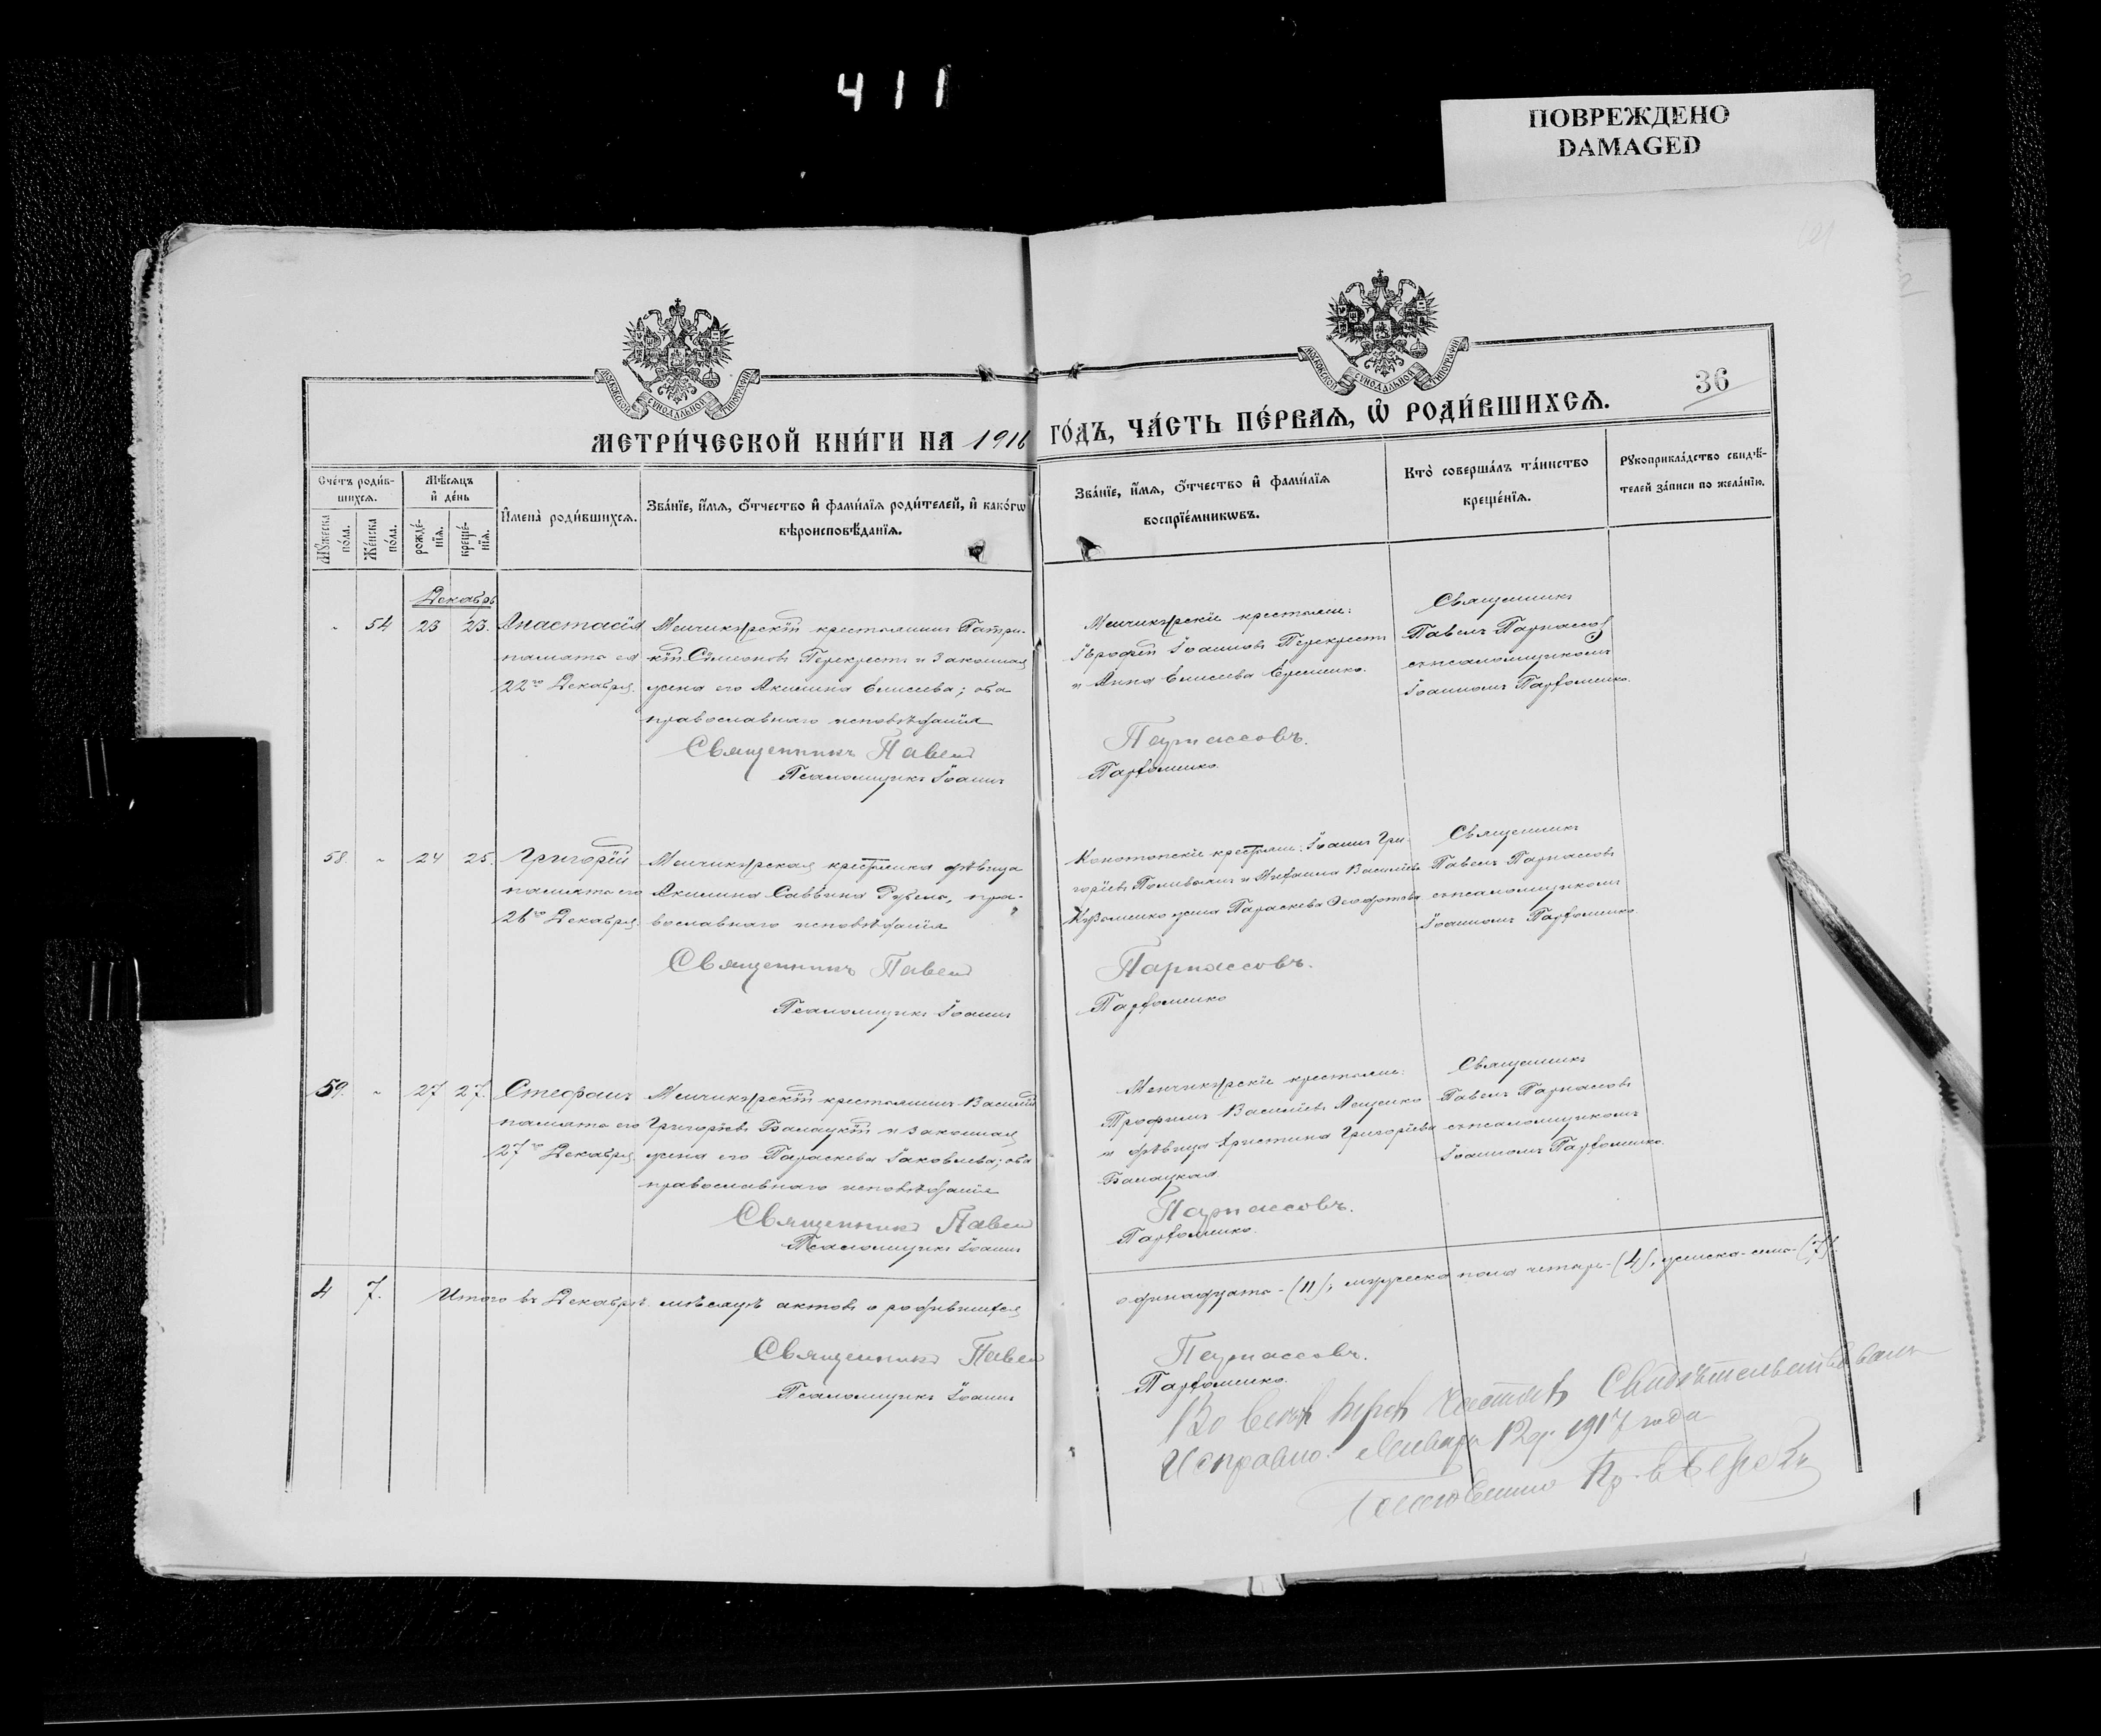 411
ПОВРЕЖДЕНО
DAMAGED
МОСКОВСКОЙ СУНОДАЛЬНОЙ ТИПОГРАФІИ
МОСКОВСКОЙ СУНОДАЛЬНОЙ ТИПОГРАФІИ
36
МЕТРИ́ЧЕСКОЙ КНИ́ГИ НА 1916 ГО́ДЪ, ЧА́СТЬ ПЕ́РВАЯ, Ѽ РОДИ́ВШИХСЯ.
Сче́тъ роди́в-
шихся.
Мꙋ́жеска по́ла.
Же́нска по́ла.
Мѣ́сяцъ
и҆ де́нь
рожде́-
нїя.
креще́-
нїя.
И҆мена̀ роди́вшихся.
Зва́нїе, и҆́мя, ѻ҆́тчество и҆ фами́лїя роди́телей, и҆ како́гѡ
вѣроисповѣ́данїя.
Зва́нїе, и҆́мя, ѻ҆́тчество и҆ фами́лїя
воспрїе́мникѡвъ.
Кто̀ соверша́лъ та́инство
креще́нїя.
Рꙋкоприкла́дство свидѣ́-
телей за́писи по жела́нїю.
Декабрь
54 23 23. Анастасія
память ея
22го Декабря.
крестьянинъ Патри-
кій Симеоновъ Перекрестъ и законная
жена его Акилина Елисеева; оба
православнаго исповѣданія
Священникъ Павелъ
Псаломщикъ Іоаннъ
крестьяне:
Іероѳей Іоанновъ Перекрестъ
и Анна Елисеева Еременко.
Парнассовъ.
Парфоменко
Священникъ
Павелъ Парнассовъ
съ псаломщикомъ
Іоанномъ Парфоменко.
58. 24 25. Григорій
память его
26го Декабря.
крестьянка дѣвица
Акилина Саввина пра-
вославнаго исповѣданія
Священникъ Павелъ
Псаломщикъ Іоаннъ
Конотопскіе крестьяне: Іоаннъ Гри-
горіевъ и Василіева
жена Параскева
Парнассовъ.
Парфоменко
Священникъ
Павелъ Парнассовъ
съ псаломщикомъ
Іоанномъ Парфоменко.
59. 27 27. Стефанъ
память его
27го Декабря.
крестьянинъ Василій
Григоріевъ Балацкій и законная
жена его Параскева Іаковлева; оба
православнаго исповѣданія
Священникъ Павелъ
Псаломщикъ Іоаннъ
крестьяне:
Трофимъ Василіевъ Лещенко
и дѣвица Христина Григоріева
Балацкая
Парнассовъ.
Парфоменко.
Священникъ
Павелъ Парнассовъ
съ псаломщикомъ
Іоанномъ Парфоменко.
4 7. Итого въ Декабрѣ мѣсяцѣ актовъ о родившихся одинадцать-(11), мужеска пола четыре-(4), женска-семь-(7).
Священникъ Павелъ Парнассовъ.
Псаломщикъ Іоаннъ Парфоменко.
Во всѣхъ трехъ частяхъ свидѣтельствовалъ
Исправно. Января 12 д. 1917 года